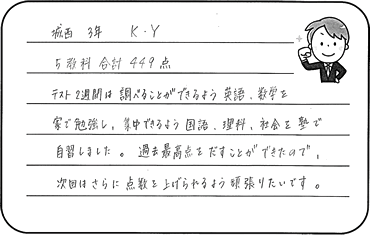 城西 3年 K・Y
5教科 合計 449点
テスト2週間は 調べることができるよう 英語、数学を
家で勉強し、集中できるよう 国語、理科、社会を 塾で
自習しました。 過去最高点をだすことができたので、
次回はさらに 点数を上げられるよう頑張りたいです。